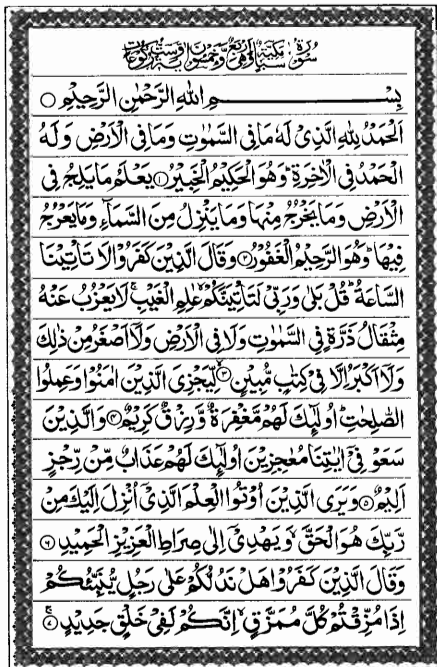 سُوْرَةُ سَبَاٍ مَّكِّيَّةٌ وَّهِيَ اَرْبَعٌ وَّخَمْسُوْنَ اٰيَةً وَّسِتُّ رُكُوْعَاتٍ
بِسْمِ اللّٰهِ الرَّحْمٰنِ الرَّحِيْمِ ○
اَلْحَمْدُ لِلّٰهِ الَّذِيْ لَهٗ مَا فِي السَّمٰوٰتِ وَمَا فِي الْاَرْضِ وَلَهُ
الْحَمْدُ فِي الْاٰخِرَةِ ۚ وَهُوَ الْحَكِيْمُ الْخَبِيْرُ ① يَعْلَمُ مَا يَلِجُ فِي
الْاَرْضِ وَمَا يَخْرُجُ مِنْهَا وَمَا يَنْزِلُ مِنَ السَّمَآءِ وَمَا يَعْرُجُ
فِيْهَا ؕ وَهُوَ الرَّحِيْمُ الْغَفُوْرُ ② وَقَالَ الَّذِيْنَ كَفَرُوْا لَا تَاْتِيْنَا
السَّاعَةُ ؕ قُلْ بَلٰى وَرَبِّيْ لَتَاْتِيَنَّكُمْ ۙ عٰلِمِ الْغَيْبِ ۚ لَا يَعْزُبُ عَنْهُ
مِثْقَالُ ذَرَّةٍ فِي السَّمٰوٰتِ وَلَا فِي الْاَرْضِ وَلَاۤ اَصْغَرُ مِنْ ذٰلِكَ
وَلَاۤ اَكْبَرُ اِلَّا فِيْ كِتٰبٍ مُّبِيْنٍ ③ لِّيَجْزِيَ الَّذِيْنَ اٰمَنُوْا وَعَمِلُوا
الصّٰلِحٰتِ ؕ اُولٰٓئِكَ لَهُمْ مَّغْفِرَةٌ وَّرِزْقٌ كَرِيْمٌ ④ وَالَّذِيْنَ
سَعَوْ فِيْۤ اٰيٰتِنَا مُعٰجِزِيْنَ اُولٰٓئِكَ لَهُمْ عَذَابٌ مِّنْ رِّجْزٍ
اَلِيْمٌ ⑤ وَيَرَى الَّذِيْنَ اُوْتُوا الْعِلْمَ الَّذِيْۤ اُنْزِلَ اِلَيْكَ مِنْ
رَّبِّكَ هُوَ الْحَقَّ ۙ وَيَهْدِيْۤ اِلٰى صِرَاطِ الْعَزِيْزِ الْحَمِيْدِ ⑥
وَقَالَ الَّذِيْنَ كَفَرُوْا هَلْ نَدُلُّكُمْ عَلٰى رَجُلٍ يُّنَبِّئُكُمْ
اِذَا مُزِّقْتُمْ كُلَّ مُمَزَّقٍ ۙ اِنَّكُمْ لَفِيْ خَلْقٍ جَدِيْدٍ ⑦